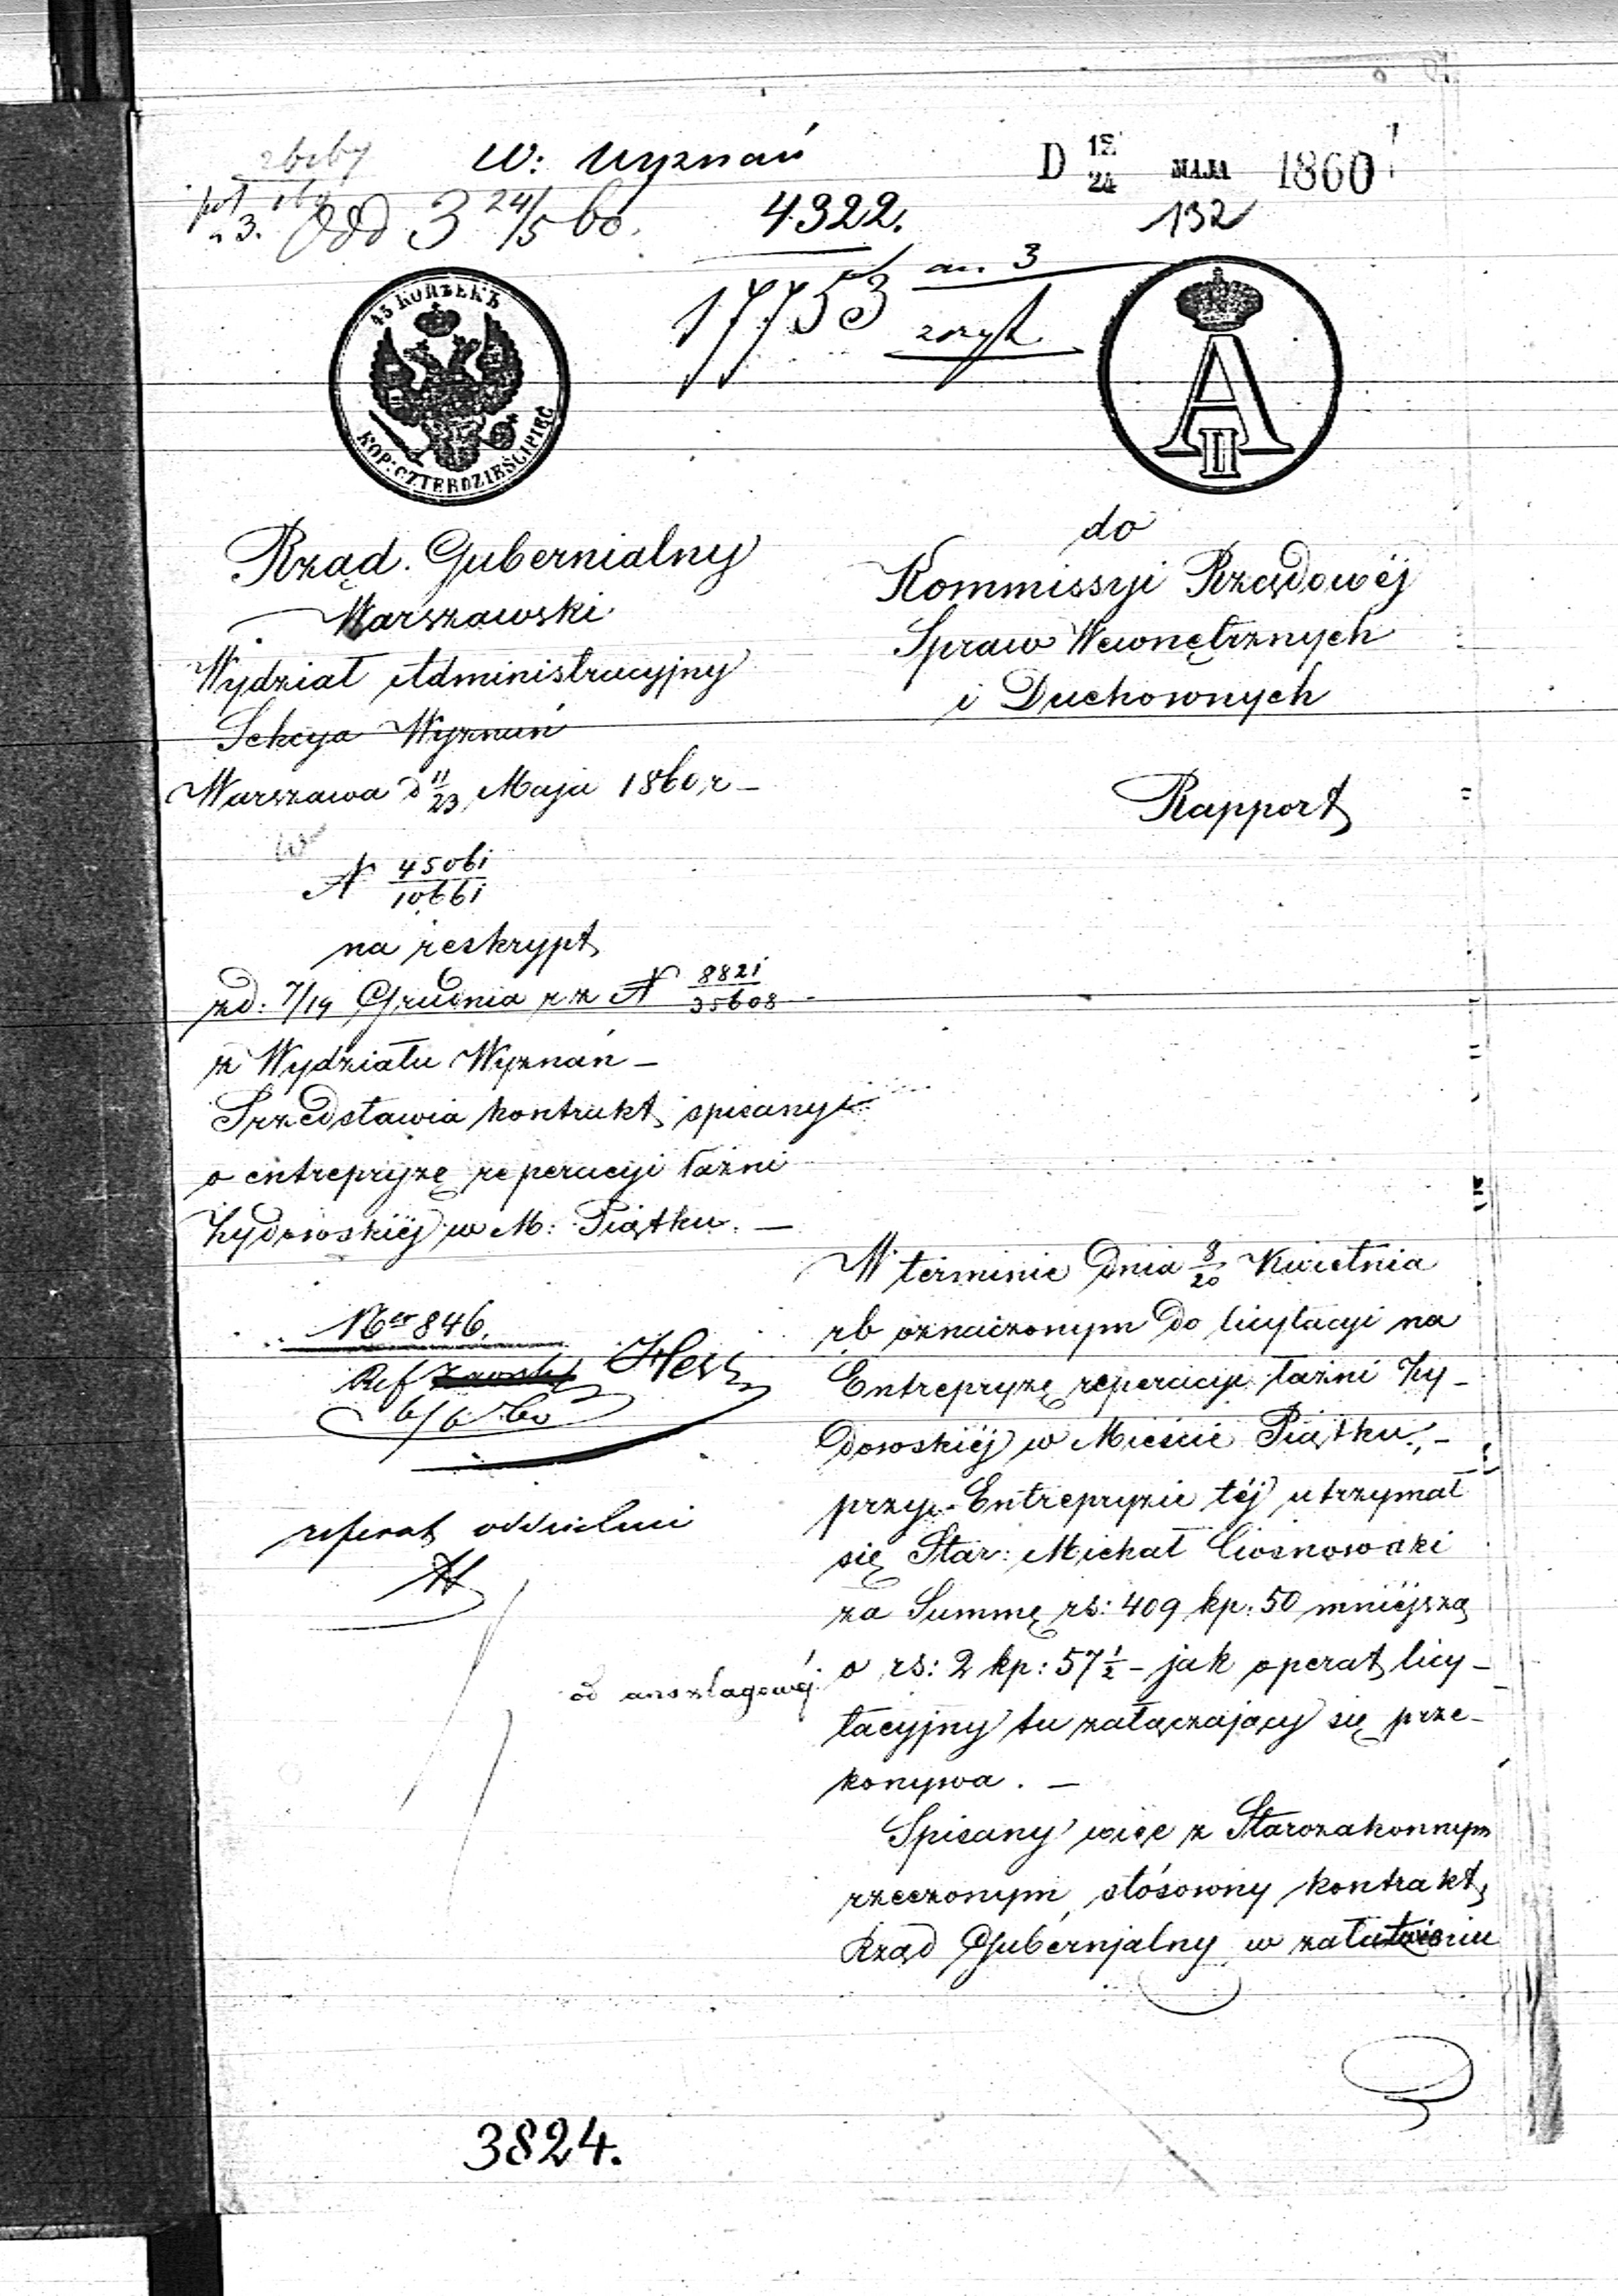 W: Wyznań
D 12/24 MAJA 1860
132
Odd 3 24/5 60.
4322.
17753
an. 3
45 КОПѢЕКЪ
KOP: CZTERDZIEŚCI PIĘĆ
A II
Rząd Gubernialny
Warszawski
Wydział Administracyjny
Sekcya Wyznań
Warszawa d 11/23 Maja 1860 r –
N 45061/10661
na reskrypt
zd: 7/19 Grudnia rz N 8821/35608
z Wydziału Wyznań –
Przedstawia kontrakt spisany
o entrepryzę reperacyi łaźni
Żydowskiéj w M: Piątku. –
Ner 846.
Ref
6/6 60
Hesz
referat oddzielnie
H
do
Kommissyi Rządowéj
Spraw Wewnętrznych
i Duchownych
Rapport
W terminie dnia 8/20 Kwietnia
rb oznaczonym do licytacyi na
Entrepryzę reperacyi łaźni Ży–
dowskiéj w Mieście Piątku, –
przy Entrepryzie téj utrzymał
się Star: Michał
za Summę rs: 409 kp: 50 mniéjszą
od anszlagowéj
o rs: 2 kp: 57 1/2 – jak operat licy–
tacyjny tu załączający się prze–
konywa. –
Spisany więc z Starozakonnym
rzeczonym stósowny kontrakt,
Rząd Gubernjalny w załatwieniu
3824.